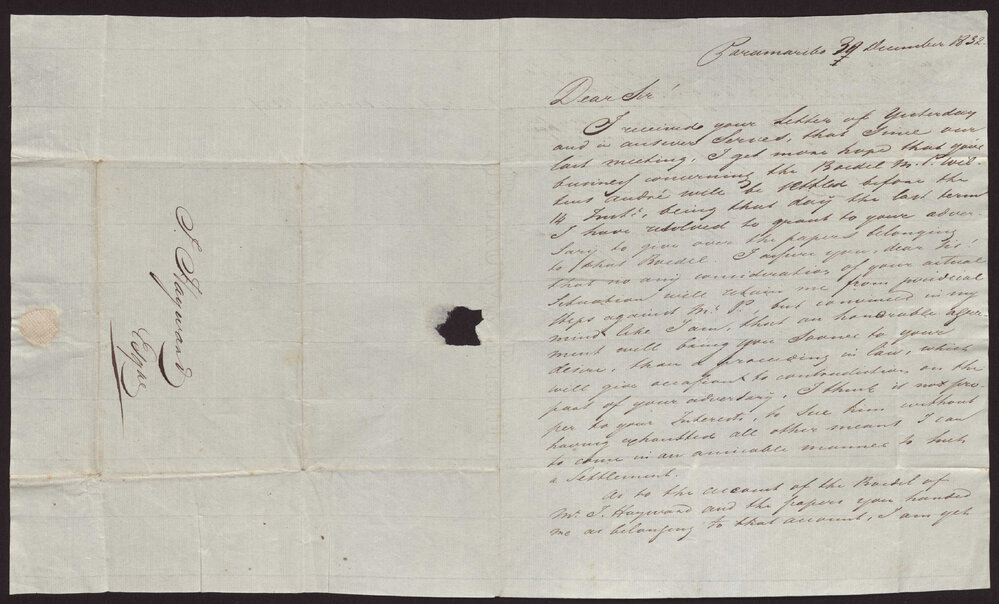 J. Hayward
Esqre
Paramaribo December 1832
Dear Sir!
I received your Letter of Yesterday
and in answer Serves, that Since our
last meeting, I get more hope that your
business concerning the Boedel Mr. P. Wil-
tens André will be settled before the
14 Inst., being that day the last term
I have resolved to grant to your adver-
sary to give over the papers belonging
to that Boedel. I assure you, dear Sir!
that no any consideration of your actual
Situation will retain me from juridical
steps against Mr. P., but convinced in my
mind like I am, that an honorable agree-
ment will bring you Sooner to your
desire, than a proceeding in law, which
will give occasions to contradiction on the
part of your adversary, I think it not pro-
per to your Interests, to Sue him without
having exhausted all other means I can
to come in an amicable manner to such
a Settlement.
As to the account of the Boedel of
Mr. J. Hayward and the papers you handed
me as belonging to that account, I am yet